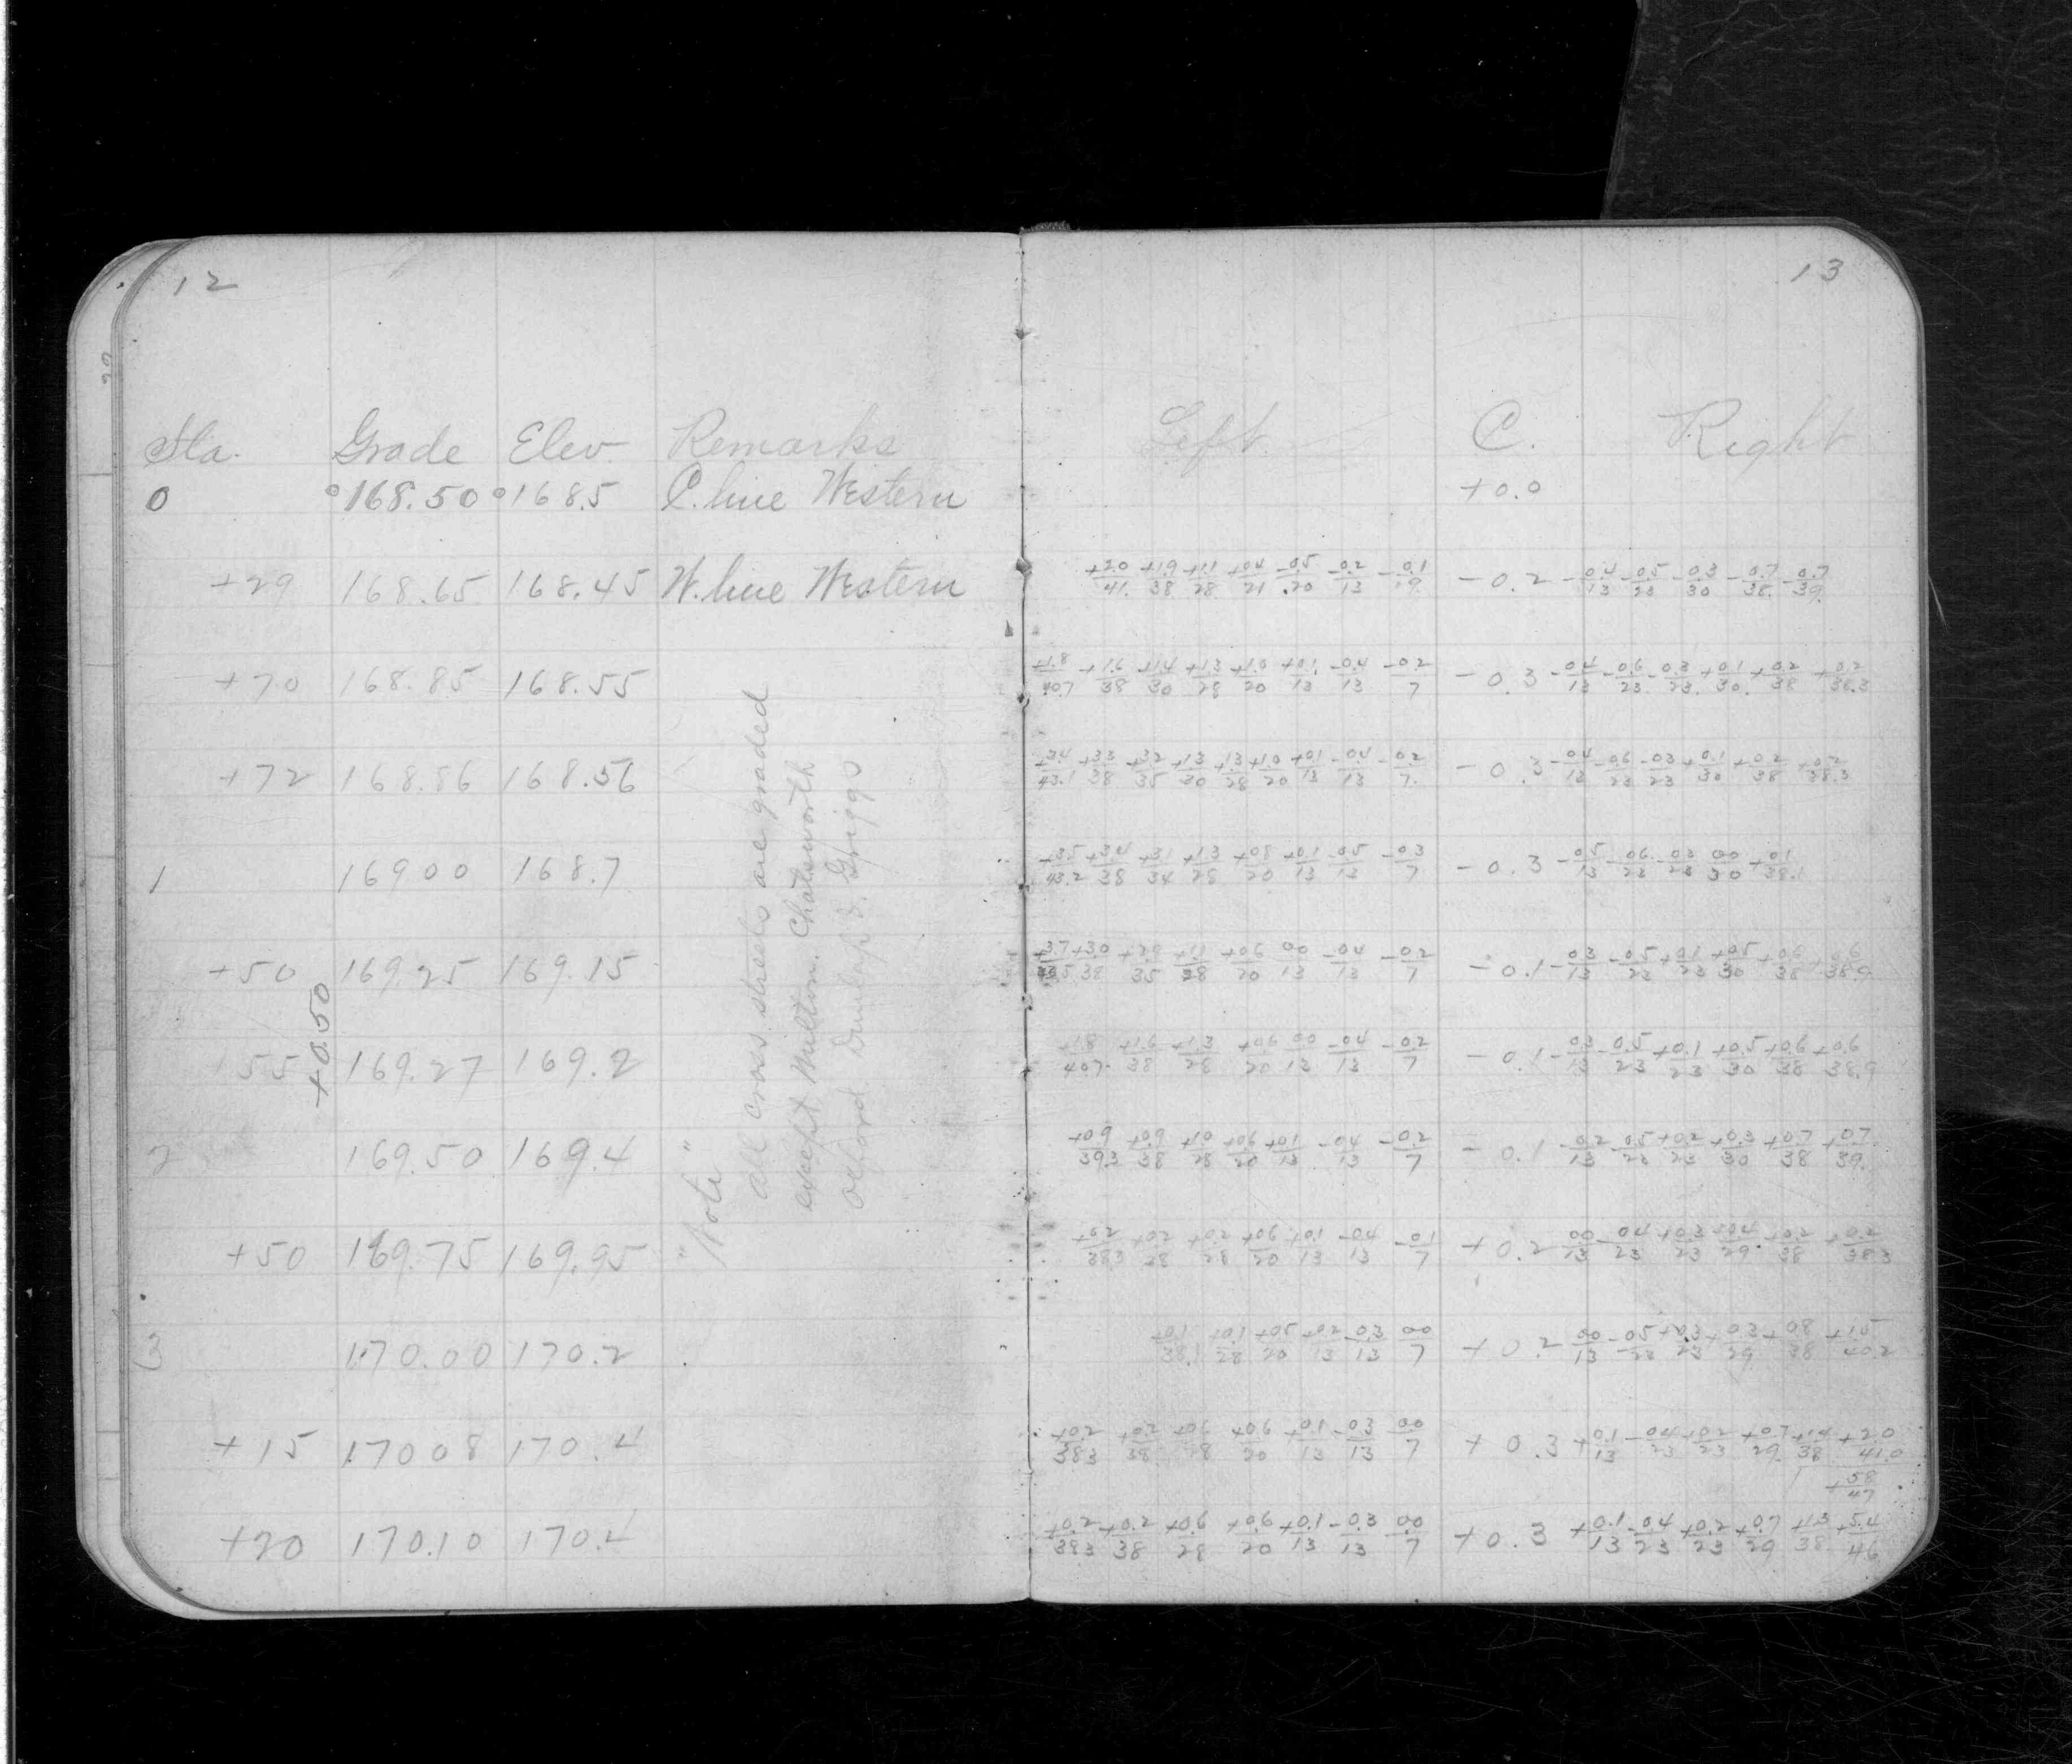 12
Sta. Grade Elev. Remarks
0 168.50 168.5 C. line Western
+29 168.65 168.45 W. line Western
+70 168.85 168.55
+72 168.86 168.56
1 169 00 168.7
+50 169.25 169.15
+0.50
55 169.27 169.2
2 169.50 169.4
+50 169.75 169.95
3 170.00 170.2
+15 170 08 170.4
+20 170.10 170.4
"Note"
All cross streets are graded
except Milton. Chatsworth
Oxford Dunlap & Griggs
13
Left C. Right
+0.0
+2.0/41. +1.9/38 +1.1/28 +0.4/21 -0.5/20 -0.2/13 -0.1/19. -0.2 -0.4/13 -0.5/23 -0.3/30 -0.7/38. -0.7/39.
+1.8/40.7 +1.6/38 +1.4/30 +1.3/28 +1.0/20 +0.1/13 -0.4/13 -0.2/7 -0.3 -0.4/13 -0.6/23 -0.3/23. +0.1/30. +0.2/38 +0.2/38.3
+3.4/43.1 +3.3/38 +3.2/35 +1.3/30 +1.3/28 +1.0/20 +0.1/13 -0.4/13 -0.2/7. -0.3 -0.4/13 -0.6/23 -0.3/23 +0.1/30 +0.2/38 +0.2/38.3
+3.5/43.2 +3.4/38 +3.1/34 +1.3/28 +0.8/20 +0.1/13 -0.5/13 -0.3/7 -0.3 -0.5/13 -0.6/23 -0.3/23 0.0/30 +0.1/38.1
+3.7 +3.0/38 /35 +1.1/28 +0.6/20 0.0/13 -0.4/13 -0.2/7 -0.1 -0.3/13 -0.5/23 +0.1/23 +0.5/30 +0.6/38 +0.6/38.9
+1.8/40.7 +1.6/38 +1.3/28 +0.6/20 0.0/13 -0.4/13 -0.2/7 -0.1 -0.3/13 -0.5/23 +0.1/23 +0.5/30 +0.6/38 +0.6/38.9
+0.9/39.3 +0.9/38 +1.0/28 +0.6/20 +0.1/13 -0.4/13 -0.2/7 -0.1 -0.2/13 -0.5/23 +0.2/23 +0.3/30 +0.7/38 +0.7/39.
+0.2/38.3 +0.2/28 +0.2/28 +0.6/20 +0.1/13 -0.4/13 -0.1/7 +0.2 0.0/13 -0.4/23 +0.3/23 +0.4/29. +0.2/38 +0.2/38.3
+0.1/38.1 +0.1/28 +0.5/20 +0.2/13 -0.3/13 0.0/7 +0.2 0.0/13 -0.5/23 +0.3/23 +0.3/29 +0.8/38 +1.5/40.2
+0.2/38.3 +0.2/38 +0.6/28 +0.6/20 +0.1/13 -0.3/13 0.0/7 +0.3 +0.1/13 -0.4/23 +0.2/23 +0.7/29 +1.4/38 +2.0/41.0
+5.8/47
+0.2/38.3 +0.2/38 +0.6/28 +0.6/20 +0.1/13 -0.3/13 0.0/7 +0.3 +0.1/13 -0.4/23 +0.2/23 +0.7/29 +1.3/38 +5.4/46